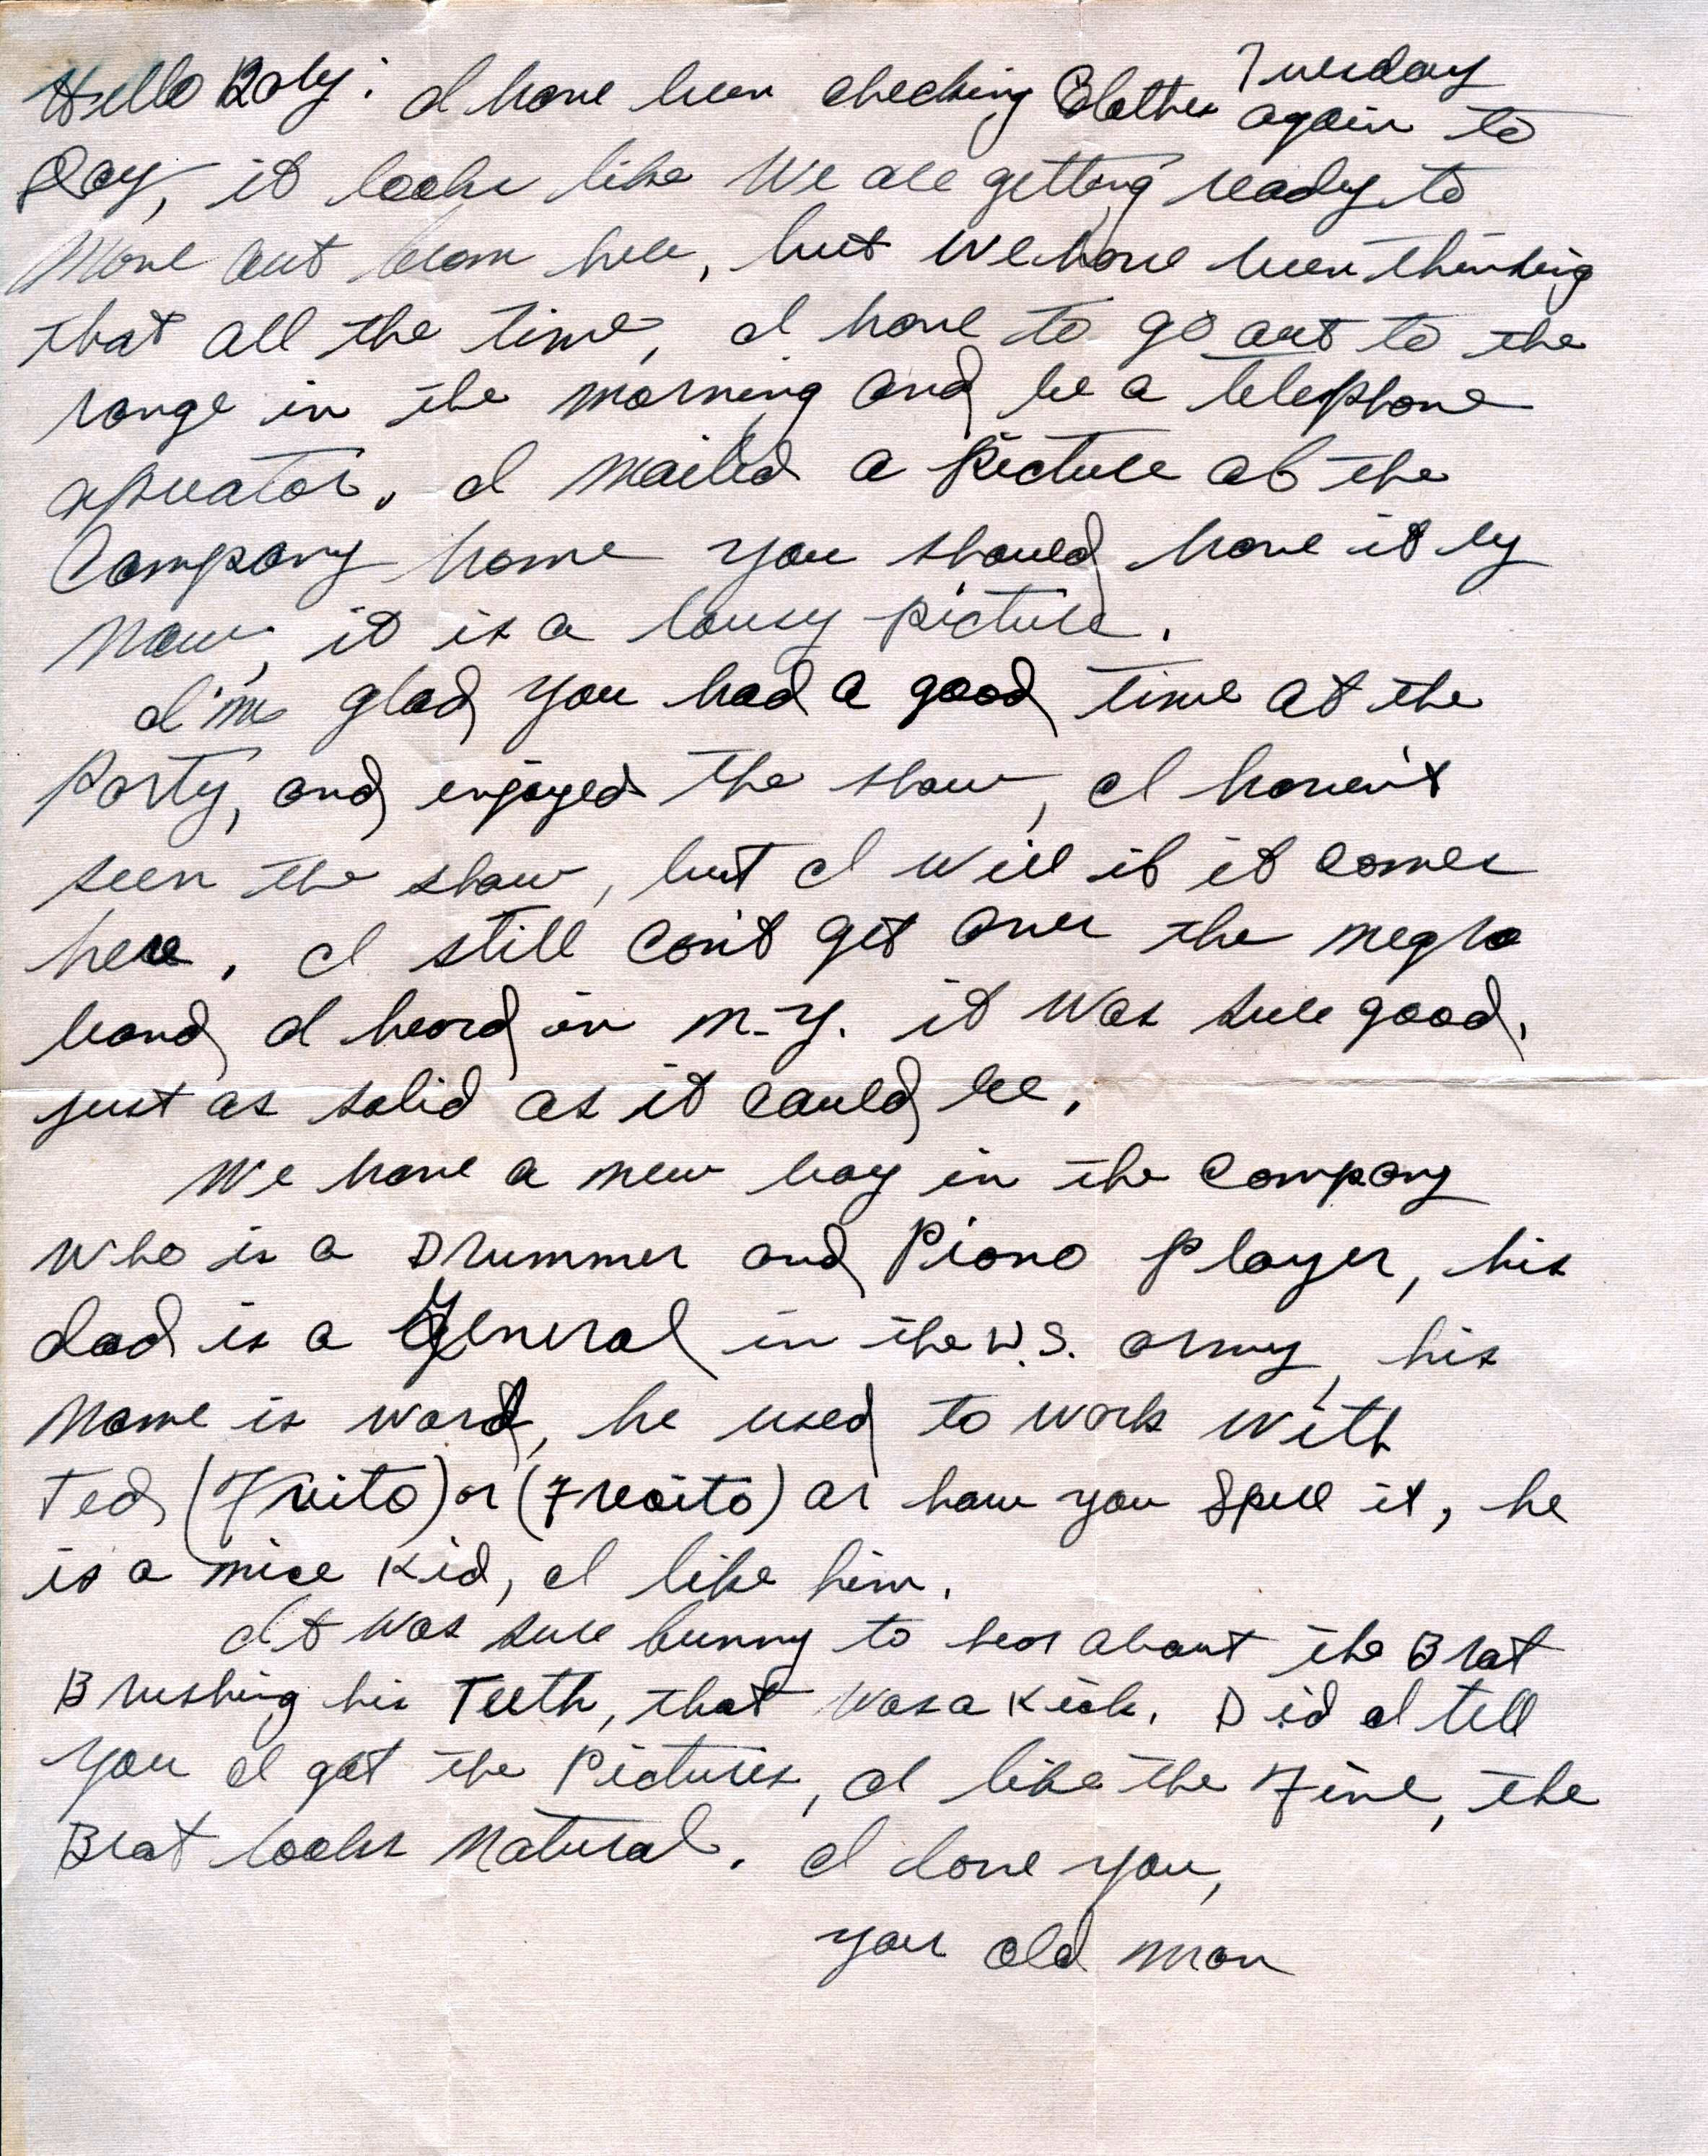 Tuesday
Hello Baby: I have been checking Clothes again to
Day, it looks like We are getting ready to
Move out from here, but We have been thinking
that all the time, I have to go out to the
range in the morning and be a telephone
operator. I mailed a Picture of the
Company home you should have it by
Now, it is a lousy picture.
I'm glad you had a good time at the
Party, and enjoyed the show, I haven't
seen the show, but I will if it comes
here. I still can't get over the negro
band I heard in N.Y. it was sure good,
just as solid as it could be.
We have a new boy in the Company
who is a Drummer and Piano Player, his
dad is a General in the U.S. army, his
Name is ward, he used to work with
Ted (Fruito) or (Freoito) or how you Spell it, he
is a nice Kid, I like him.
It was sure funny to hear about the Brat
Brushing his Teeth, that was a Kick. Did I tell
you I got the Pictures, I like the Fine, the
Brat looks Natural. I love you,
your old man